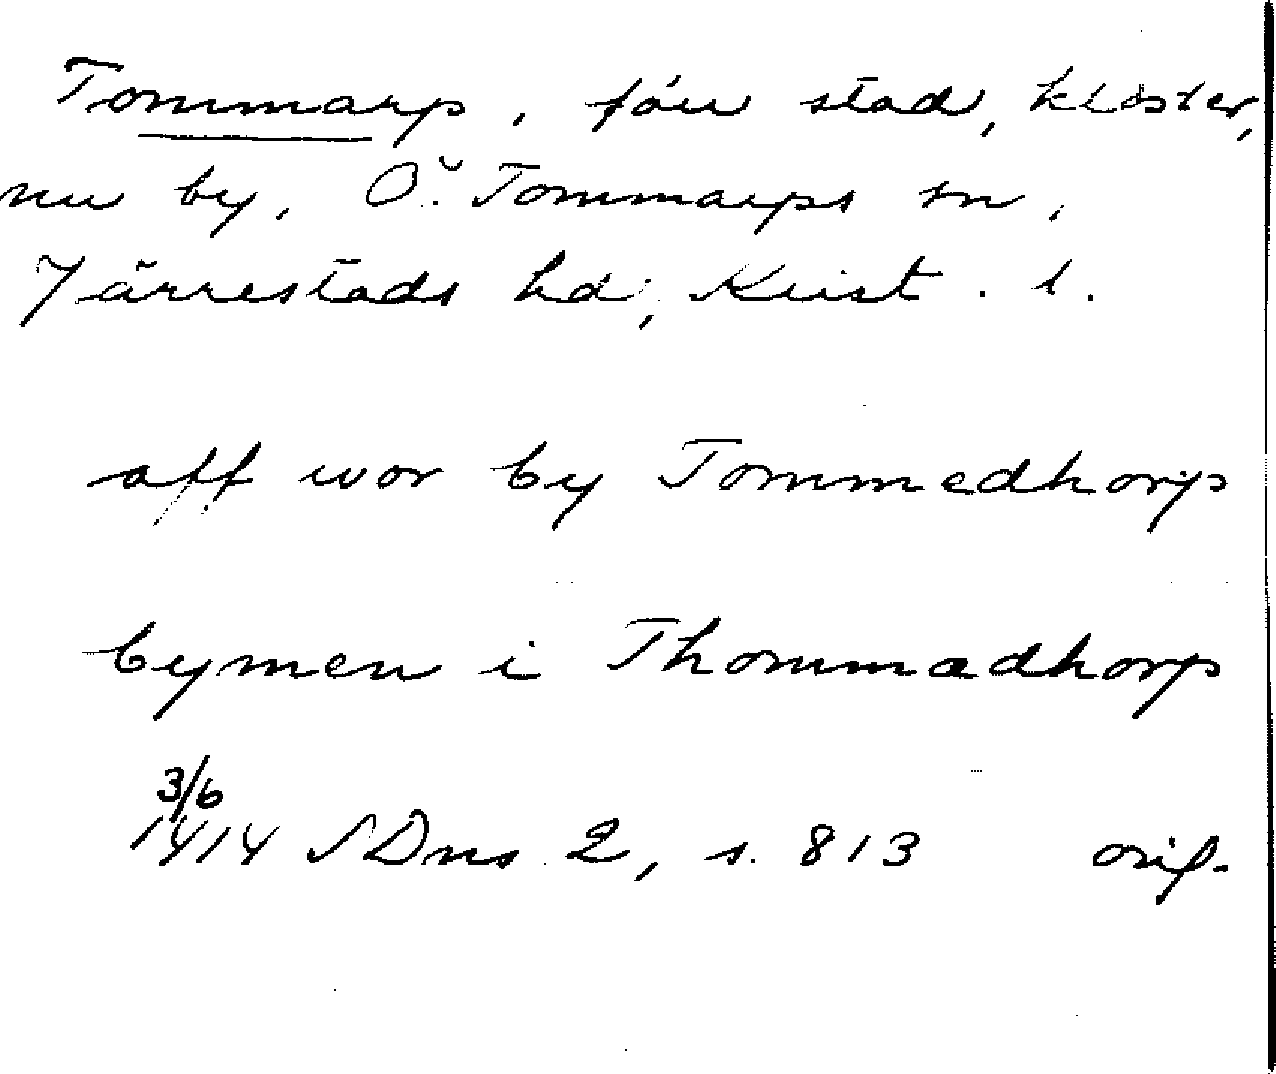 Tommarp, förr stad, kloster,
nu by, Ö. Tommarps sn,
Järrestads hd, Krist. l.
aff wor by Tommedhorp
bymen i Thommadhorp
3/6
1414 SDns 2, s. 813 orig.